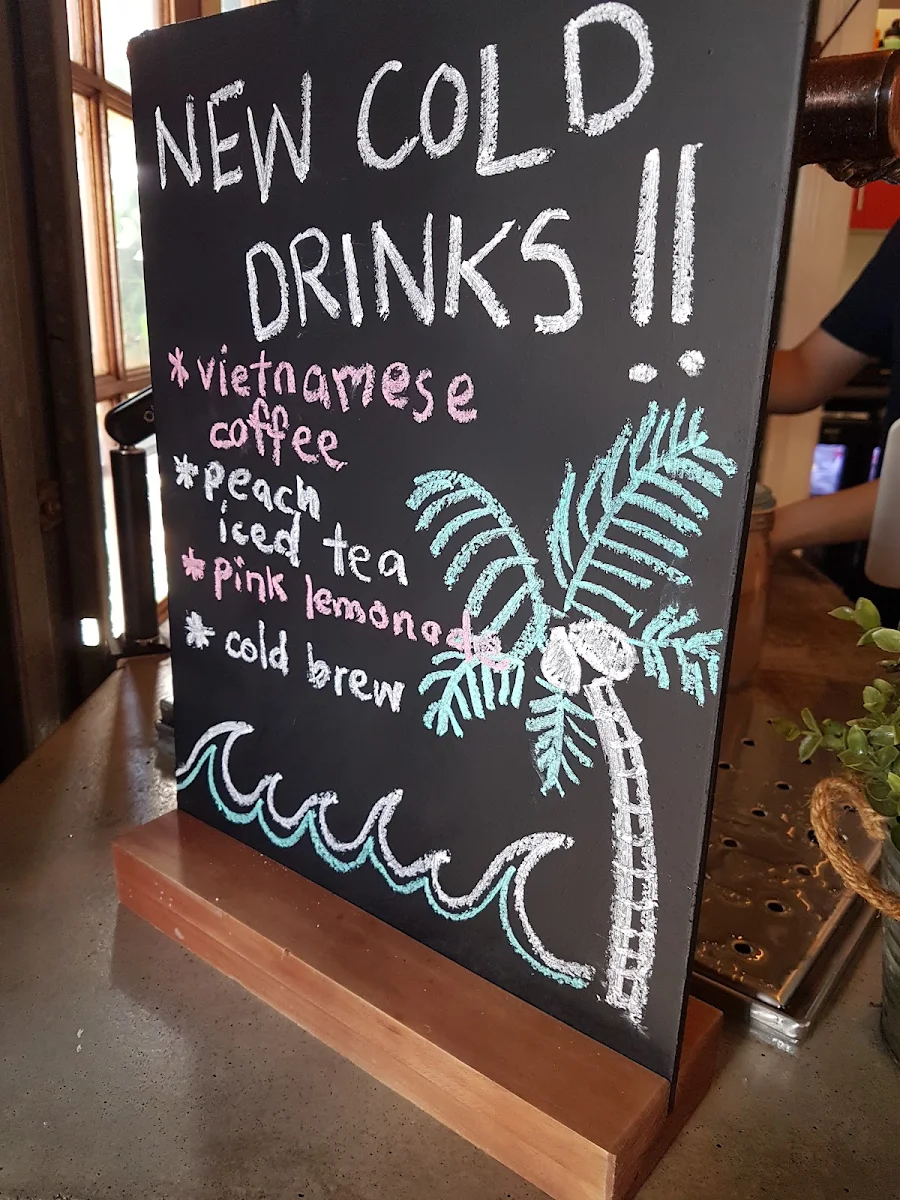 NEW COLD
DRINKS !!
*vietnamese
coffee
*peach
iced tea
*pink lemonade
* cold brew